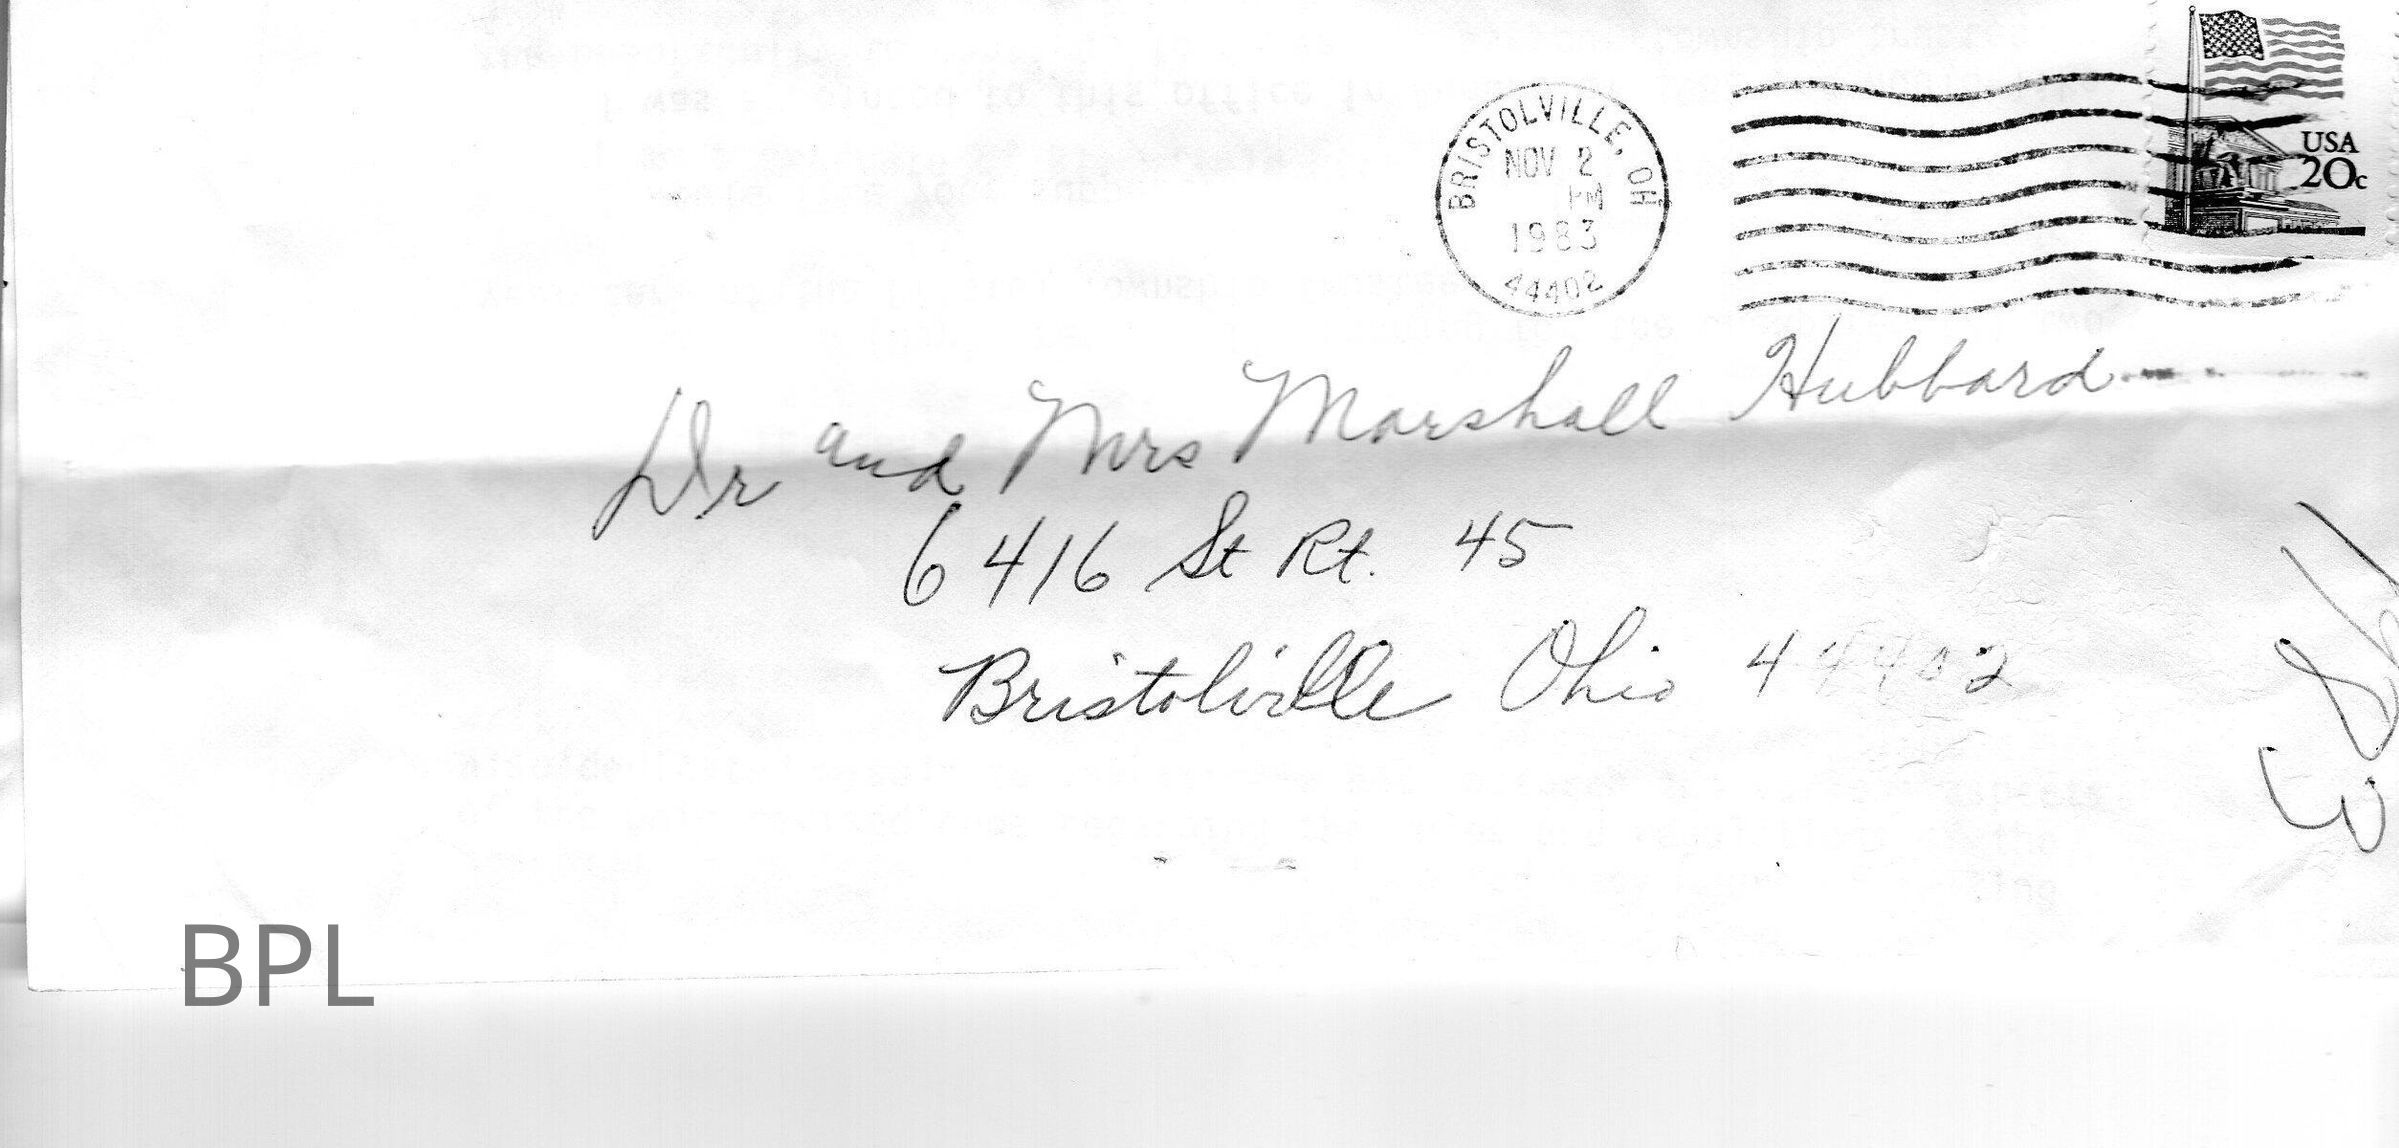 BRISTOLVILLE, OH
NOV 2
PM
1983
44402
USA
20c
Dr and Mrs Marshall Hubbard
6416 St Rt. 45
Bristolville Ohio 44402
BPL